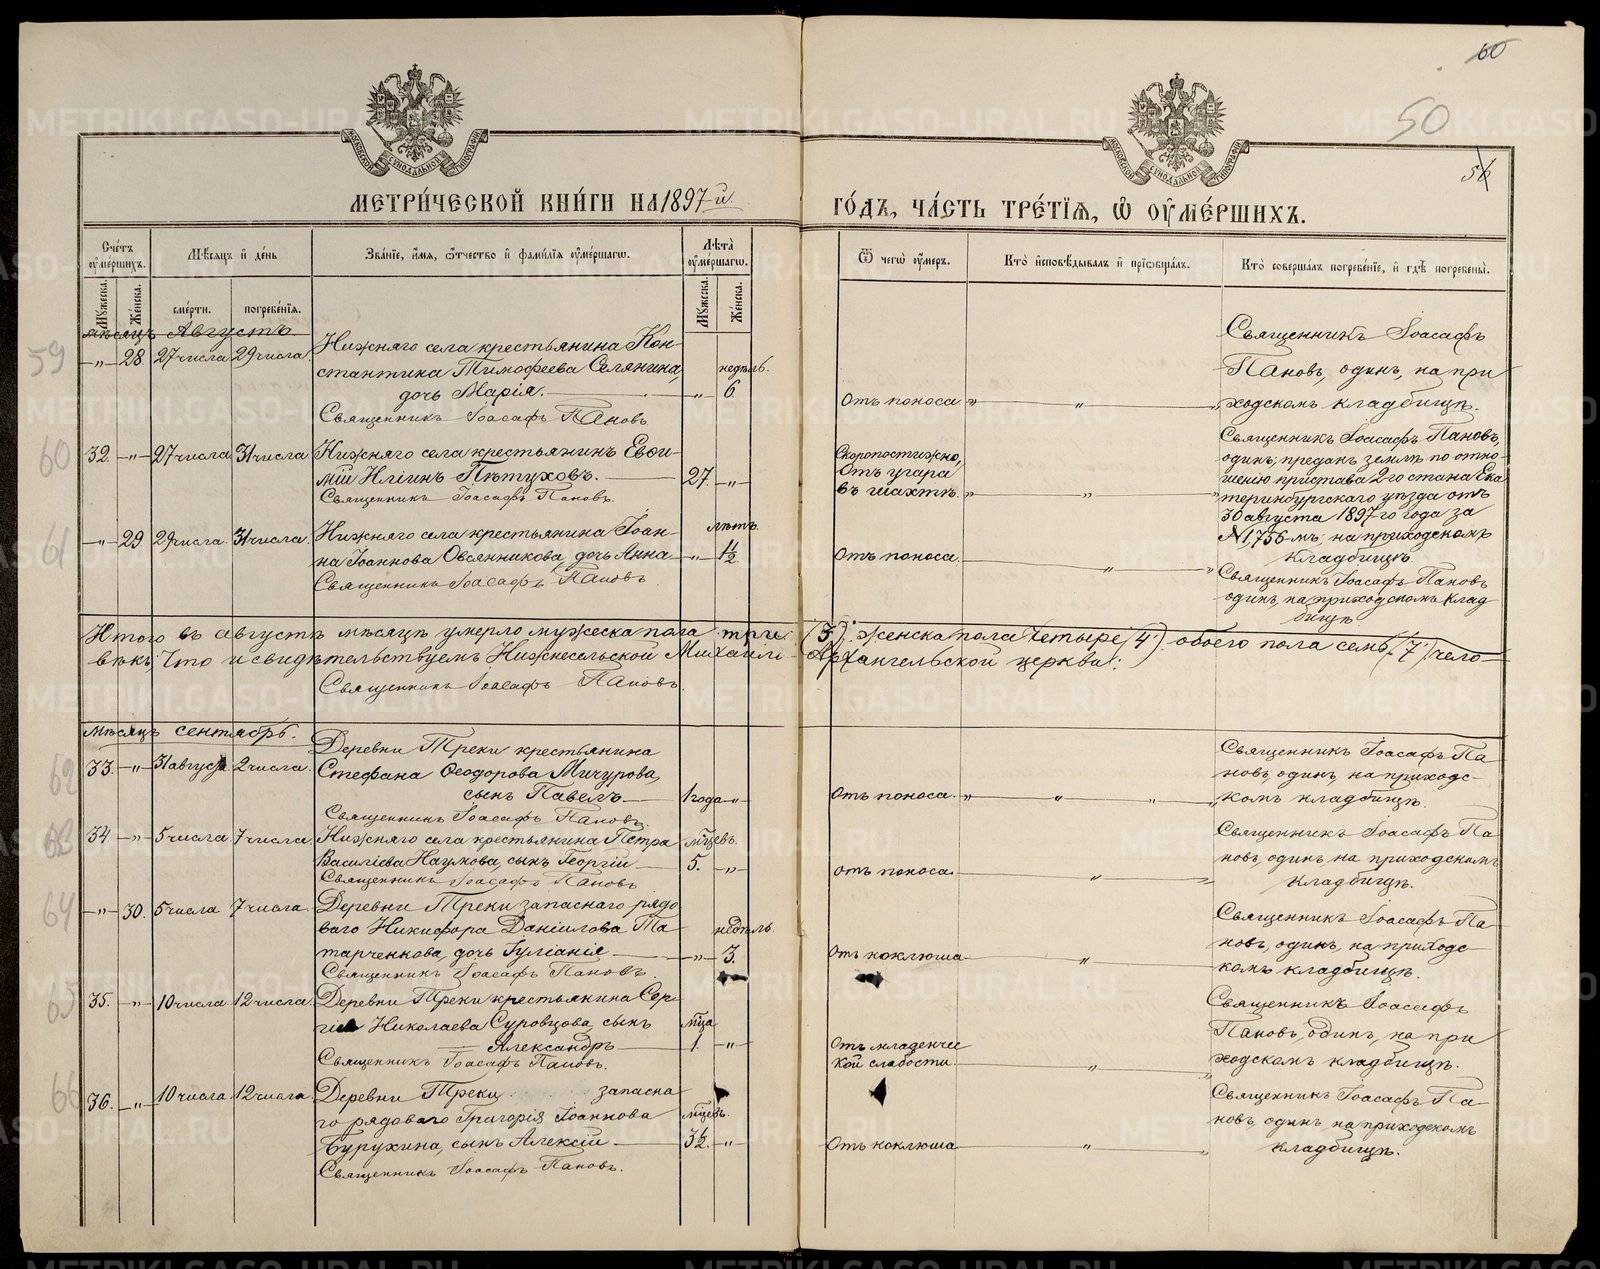 60
50
56
МЕТРИ́ЧЕСКОЙ КНИ́ГИ НА 1897-й
ГО́ДЪ, ЧА́СТЬ ТРЕ́ТІѦ, Ѡ҆ ОУ҆МЕ́РШИХЪ.
Сче́тъ оу҆ме́ршихъ.
Мѣ́сѧцъ и҆ де́нь
Зва́нїе, и҆́мѧ, ѻ҆́тчество и҆ фами́лїѧ оу҆ме́ршагѡ.
Лѣ́та оу҆ме́ршагѡ.
Ѿ чегѡ̀ оу҆́меръ.
Кто̀ и҆сповѣ́дывалъ и҆ прїѡбща́лъ.
Кто̀ соверша́лъ погребе́нїе, и҆ гдѣ̀ погребены̀.
Мꙋ́жеска.
Же́нска.
сме́рти.
погребе́нїѧ.
Мꙋ́жеска.
Же́нска.
мѣсяцъ Августъ
59
" 28. 27 числа 29 числа
Нижняго села крестьянина Кон-
стантина Тимофеева Селянина,
дочь Марія.
Священникъ Іоасафъ Пановъ
недѣль.
" 6.
Отъ поноса.
Священникъ Іоасафъ
Пановъ, одинъ, на при
ходскомъ кладбищѣ.
60
32. " 27 числа 31 числа
Нижняго села крестьянинъ Евѳи-
мій Илiинъ Пѣтуховъ.
Священникъ Іоасафъ Пановъ.
27. "
Скоропостижно,
отъ угара
въ шахтѣ.
Священникъ Іоасафъ Пановъ,
одинъ; преданъ землѣ по отно-
шенію пристава 2-го стана Ека
теринбургскаго уѣзда отъ
30 августа 1897-го года за
№1,756-мъ; на приходскомъ
кладбищѣ.
61
" 29. 29 числа 31 числа
Нижняго села крестьянина Іоан-
на Іоаннова Овсянникова, дочь Анна
Священникъ Іоасафъ Пановъ.
лѣтъ.
" 1½
Отъ поноса.
Священникъ Іоасафъ Пановъ
одинъ, на приходскомъ клад
бищѣ
Итого въ августѣ мѣсяцѣ умерло мужеска пола три (3), женска пола четыре (4) обоего пола семь (7) чело-
вѣкъ; Что и свидѣтельствуемъ Нижнесельской Михаило-Архангельской церкви:
Священникъ Іоасафъ Пановъ.
мѣсяцъ сентябрь.
62
33. " 31 августа 2 числа.
Деревни Треки крестьянина
Стефана Ѳеодорова Мичурова,
сынъ Павелъ
Священникъ Іоасафъ Пановъ.
1 года "
Отъ поноса.
Священникъ Іоасафъ Па-
новъ, одинъ, на приходс-
комъ кладбищѣ.
63
34 " 5 числа 7 числа.
Нижняго села крестьянина Петра
Василіева Наумова, сынъ Георгій
Священникъ Іоасафъ Пановъ
мѣцевъ.
5. "
Отъ поноса.
Священникъ Іоасафъ Па
новъ, одинъ на приходскомъ
кладбищѣ.
64
" 30. 5 числа 7 числа.
Деревни Треки запаснаго рядо
ваго Никифора Даніилова Та
тарченкова, дочь Іуліанія
Священникъ Іоасафъ Пановъ.
недѣль.
" 3.
Отъ коклюша
Священникъ Іоасафъ Па-
новъ, одинъ, на приходс-
комъ кладбищѣ.
65
35. " 10 числа 12 числа.
Деревни Треки крестьянина Сер-
гія Николаева Суровцова, сынъ
Александръ
Священникъ Іоасафъ Пановъ.
мѣца
1. "
Отъ младенчес
кой слабости.
Священникъ Іоасафъ
Пановъ, одинъ, на при
ходскомъ кладбищѣ.
66
36. " 10 числа 12 числа
Деревни Треки запасна
го рядоваго Григорія Іоаннова
Бурухина, сынъ Алексій
Священникъ Іоасафъ Пановъ.
мѣцевъ.
3½. "
Отъ коклюша
Священникъ Іоасафъ Па-
новъ, одинъ на приходскомъ
кладбищѣ.
METRIKI.GASO-URAL.RU